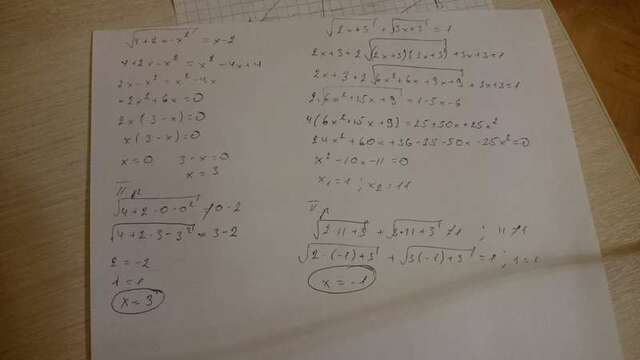 √4+2x-x² = x-2
4+2x-x² = x²-4x+4
2x-x² = x²-4x
-2x²+6x=0
2x(3-x)=0
x(3-x)=0
x=0 3-x=0
x=3
√4+2·0-0² ≠ 0-2
√4+2·3-3² = 3-2
2=-2
1=1
x=3
√2x+3 + √3x+3 = 1
2x+3+2√(2x+3)(3x+3) + 3x+3=1
2x+3+2√6x²+6x+9x+9 + 3x+3=1
2√6x²+15x+9 = 1-5x-6
4(6x²+15x+9)=25+50x+25x²
24x²+60x+36-25-50x-25x²=0
x²-10x-11=0
x₁=1; x₂=11
√2·11+3 + √3·11+3 ≠1 ; 11≠1
√2·(-1)+3 + √3(-1)+3 =1; 1=1
x=-1